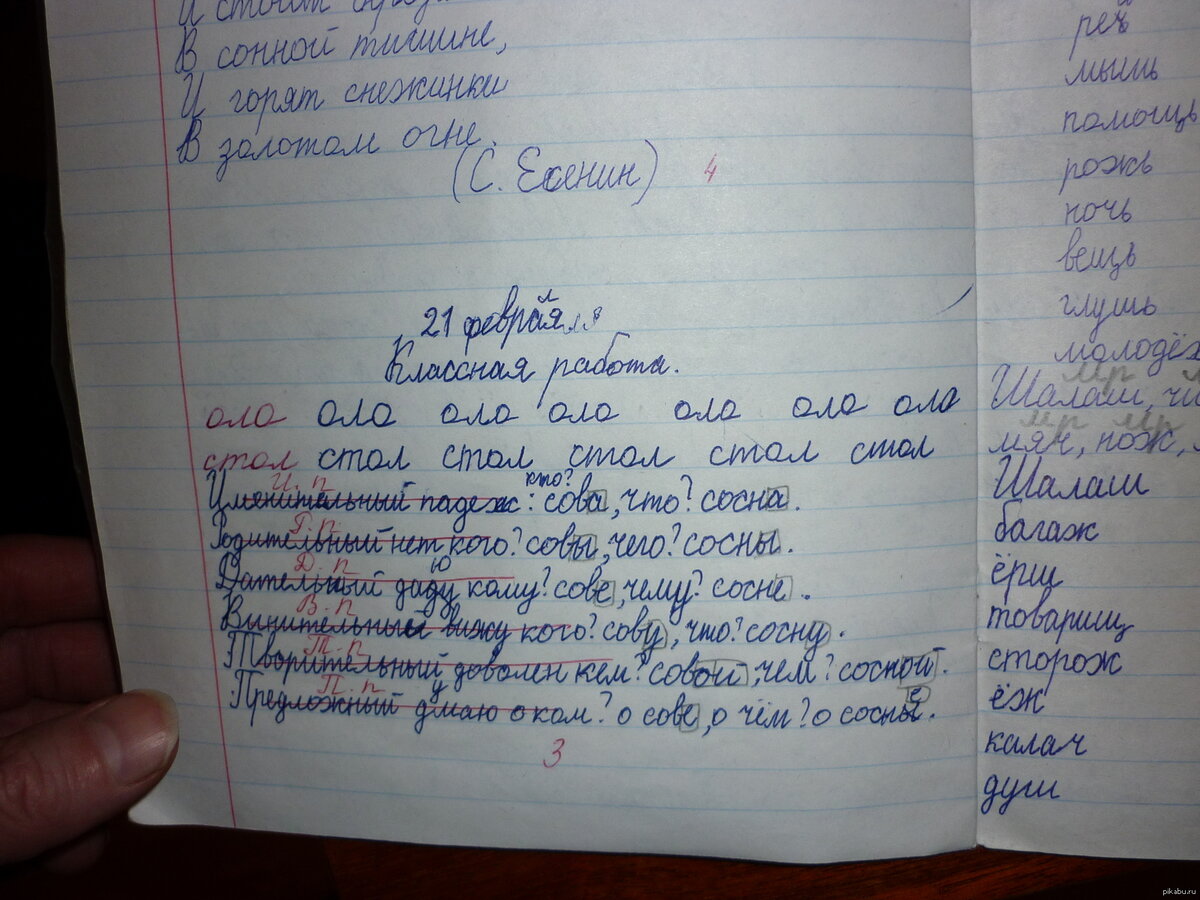 И стоит
В сонной тишине,
И горят снежинки
В золотом огне.
(С. Есенин) 4
21 февраля
Классная работа.
ола ола ола ола ола ола ола
стол стол стол стол стол стол
И. п
Именительный падеж: кто? сова, что? сосна.
Р. п.
Родительный нет кого? совы, чего? сосны.
Д. п
Дательный даду кому? сове, чему? сосне.
ю
В. п
Винительный вижу кого? сову, что? сосну.
Т. п
Творительный доволен кем? совой, чем? сосной.
П. п
Предложный думаю о ком? о сове, о чём? о сосне.
3
реч
мышь
помощь
рожь
ночь
вещь
глушь
молодёж
мр
Шалаш, чи
мр мр
мяч, нож,
Шалаш
багаж
ёрш
товарищ
сторож
ёж
калач
душ
pikabu.ru